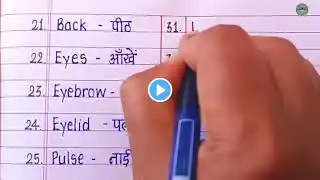 21. Back - पीठ
22. Eyes - आँखें
23. Eyebrow -
24. Eyelid -
25. Pulse - नाड़ी
31.